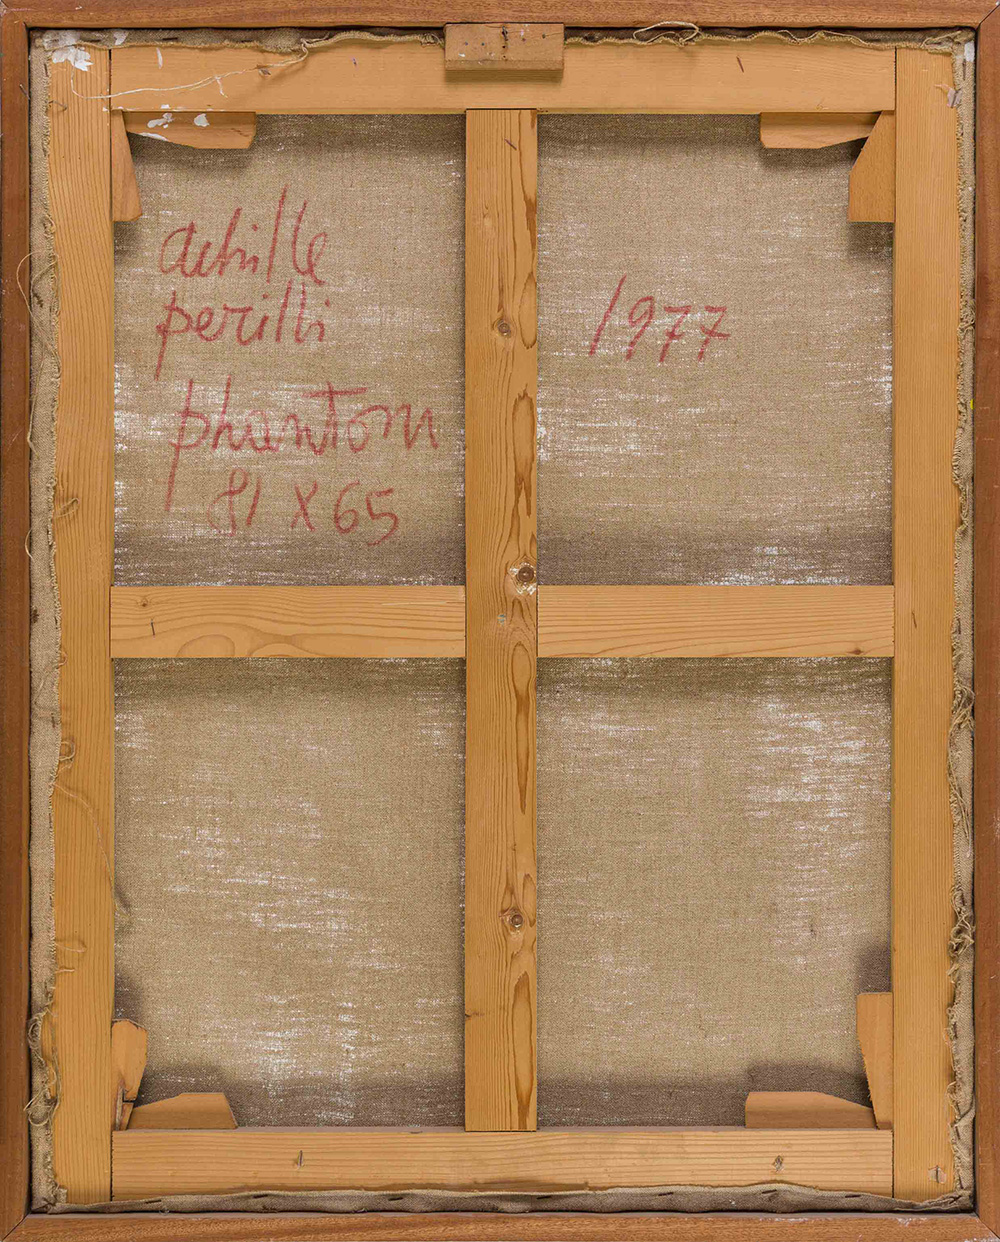 achille
perilli
1977
phantom
81 x 65